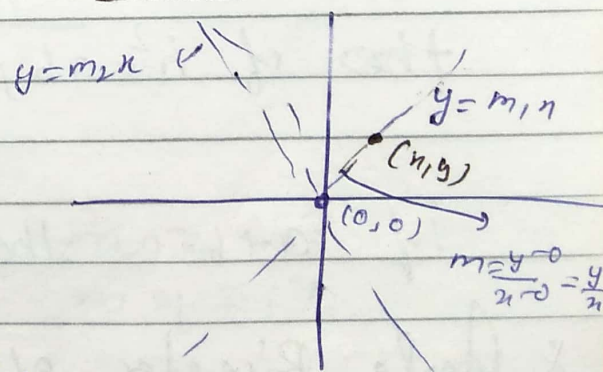 y = m₂x
y = m₁x
(x,y)
(0,0)
m = y-0/x-0 = y/x